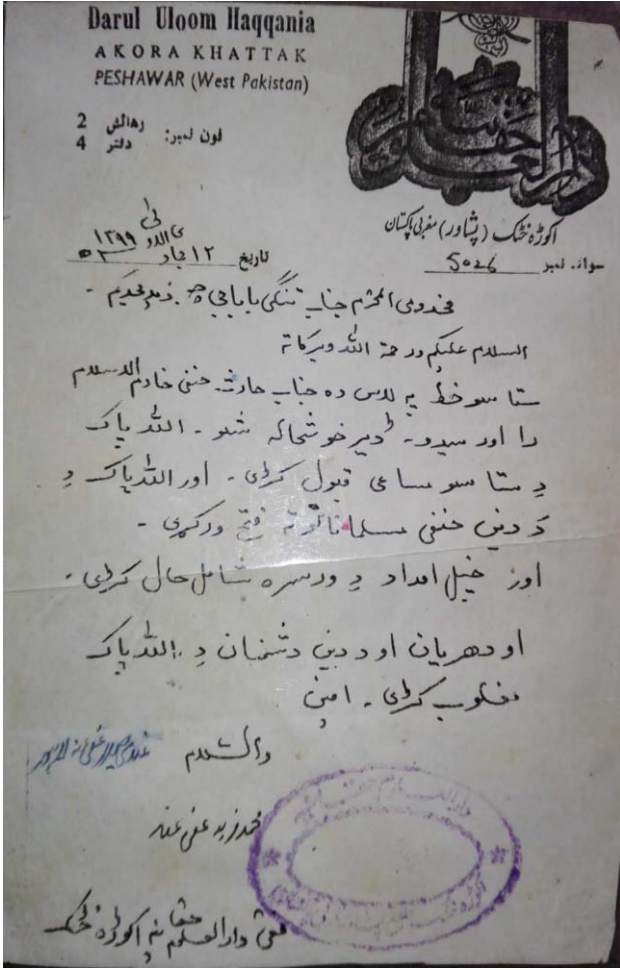 Darul Uloom Haqqania
AKORA KHATTAK
PESHAWAR (West Pakistan)
فون نمبر: رهائش 2
دفتر 4
دارالعلوم حقانیہ
اکوڑہ خٹک (پشاور) مغربی پاکستان
سوالہ نمبر 5026
تاریخ ۱۲ جماد ی الاولی ۱۳۹۹ ھ
مخدومی المحترم جناب تنګی باباجی
السلام علیکم ورحمة الله وبرکاته
ستاسو خط په لاس ده جناب حنفی خادم الاسلام
را اورسیدو۔ ډیر خوشحاله شو۔ الله پاک
دِ ستاسو ساعی قبول کړی۔ اور الله پاک دِ
دَ دین حنفی مسلمانانو ته فتح ورکړی۔
اوز خپل امداد دِ ورسره شامل حال کړی۔
او دهریان او د دین دشمنان دِ الله پاک
مغلوب کړی۔ امین
والسلام
محمد فرید عفی عنه
مفتی دارالعلوم حقانیه اکوړه خټک